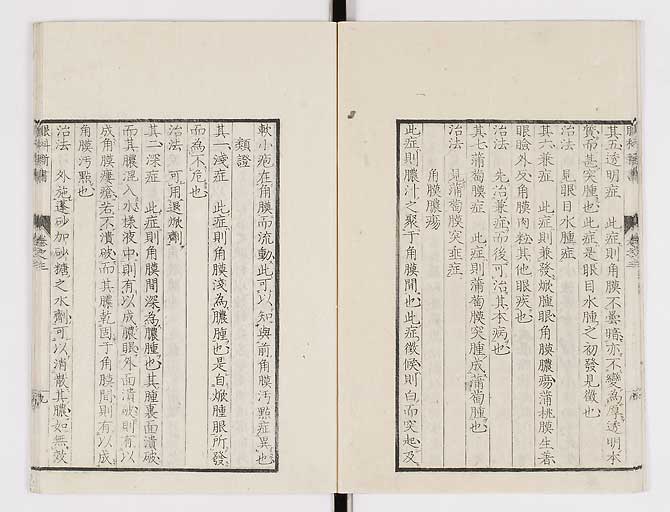 其五透明症　此症則角膜不曇暗亦不變為厚透明本
質而甚突腫也此症是眼目水腫之初發見徵也
治法　見眼目水腫症
其六兼症　此症則兼發焮腫眼角膜膿瘍蒲桃膜生著
眼瞼外反角膜肉粒其他眼疾也
治法　先治兼症而後可治其本病也
其七蒲萄膜症　此症則蒲萄膜突腫成蒲萄腫也
治法　見蒲萄膜突垂症
角膜膿瘍
此症則膿汁之聚于角膜間也此症徵候則白而突起及
軟小疱在角膜而流動此可以知與前角膜汚點症異也
類證
其一淺症　此症則角膜淺為膿腫也是自焮腫眼所發
而為不危也
治法　可用退焮劑
其二深症　此症則角膜間深為膿腫也其腫裏面潰破
而其膿混入水樣液中則有以成膿眼外面潰破則有以
成角膜瘻瘡若不潰破而其膿乾固于角膜間則有以成
角膜汚點也
治法　外施蓬砂加砂糖之水劑可以消散其膿如無效
眼科新書
卷之三
九